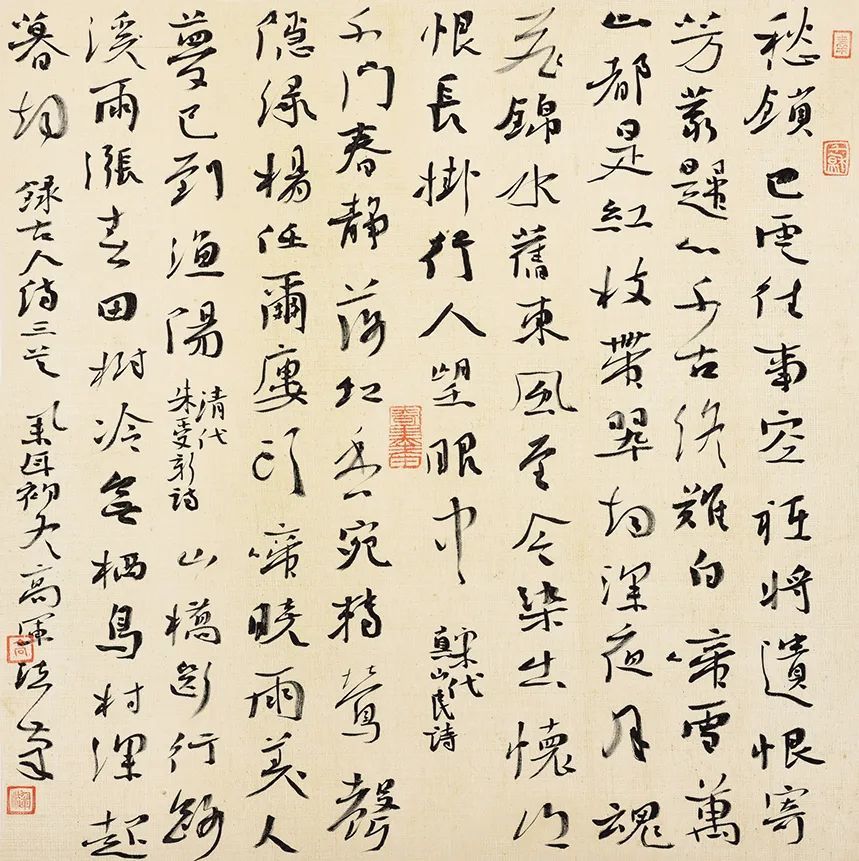 愁鎖巴雲往事空祇將遺恨寄
芳叢歸心千古終難白啼雪萬
山都是紅枝帶翠烟深夜月魂
飛錦水舊東風至今染出懷鄉
恨長掛行人望眼中
宋代
真山民詩
千門春靜落紅香宛轉鶯聲
隱綠楊任爾廔頭啼曉雨美人
夢已到漁陽
清代
朱受新詩
山橋斷行路
溪雨漲春田樹冷無栖鳥村深起
暮烟
錄古人詩三首 初冬高軍